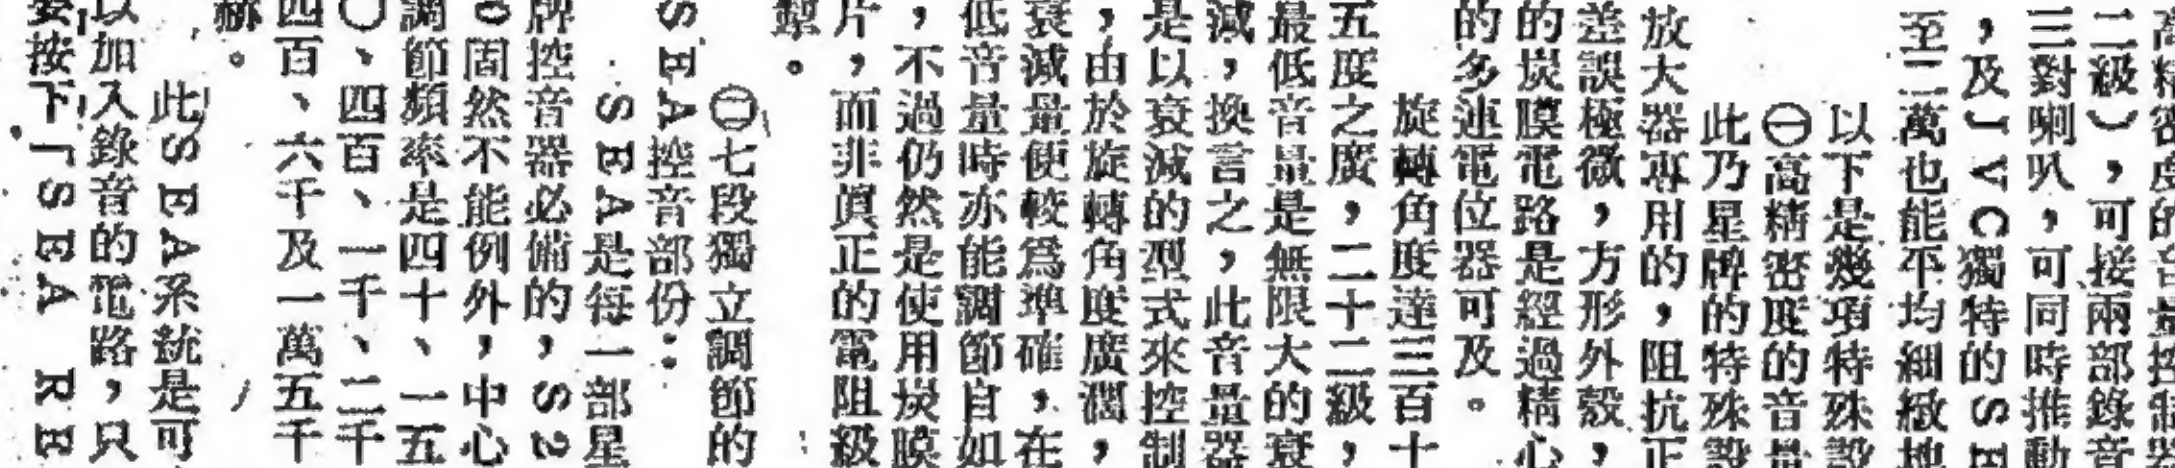 高精密度的音量控制器
二級），可接兩部錄音
三對喇叭，可同時推動
，及JVC獨特的SE
至二萬也能平均細緻地
以下是幾項特殊設
㊀高精密度的音量
此乃星牌的特殊設
放大器專用的，阻抗正
差誤極微，方形外殼，
的炭膜電路是經過精心
的多連電位器可及。
旋轉角度達三百十
五度之廣，二十二級，
最低音量是無限大的衰
減，換言之，此音量器
是以衰減的型式來控制
，由於旋轉角度廣濶，
衰減量便較爲準確，在
低音量時亦能調節自如
，不過仍然是使用炭膜
片，而非眞正的電阻級
掣。
㊁七段獨立調節的
SEA控音部份：
SEA是每一部星
牌控音器必備的，S2
0固然不能例外，中心
調節頻率是四十、一五
〇、四百、一千、二千
四百、六千及一萬五千
赫。
此SEA系統是可
以加入錄音的電路，只
要按下「SEA RE